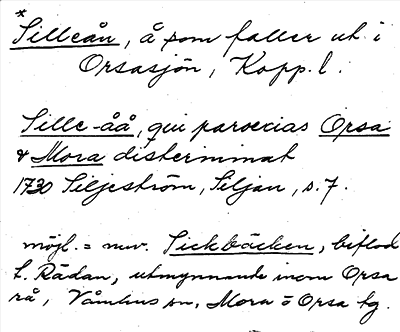 * Silleån, å som faller ut i
Orsasjön, Kopp. l.
Sille-åå, qui paroecias Orsa
& Mora disterminat
1730 Siljeström, Siljan, s. 7.
möjl. = nuv. Sickbäcken, biflod
t. Rädan, utmynnande inom Orsa
rå, Våmhus sn, Mora o Orsa tg.